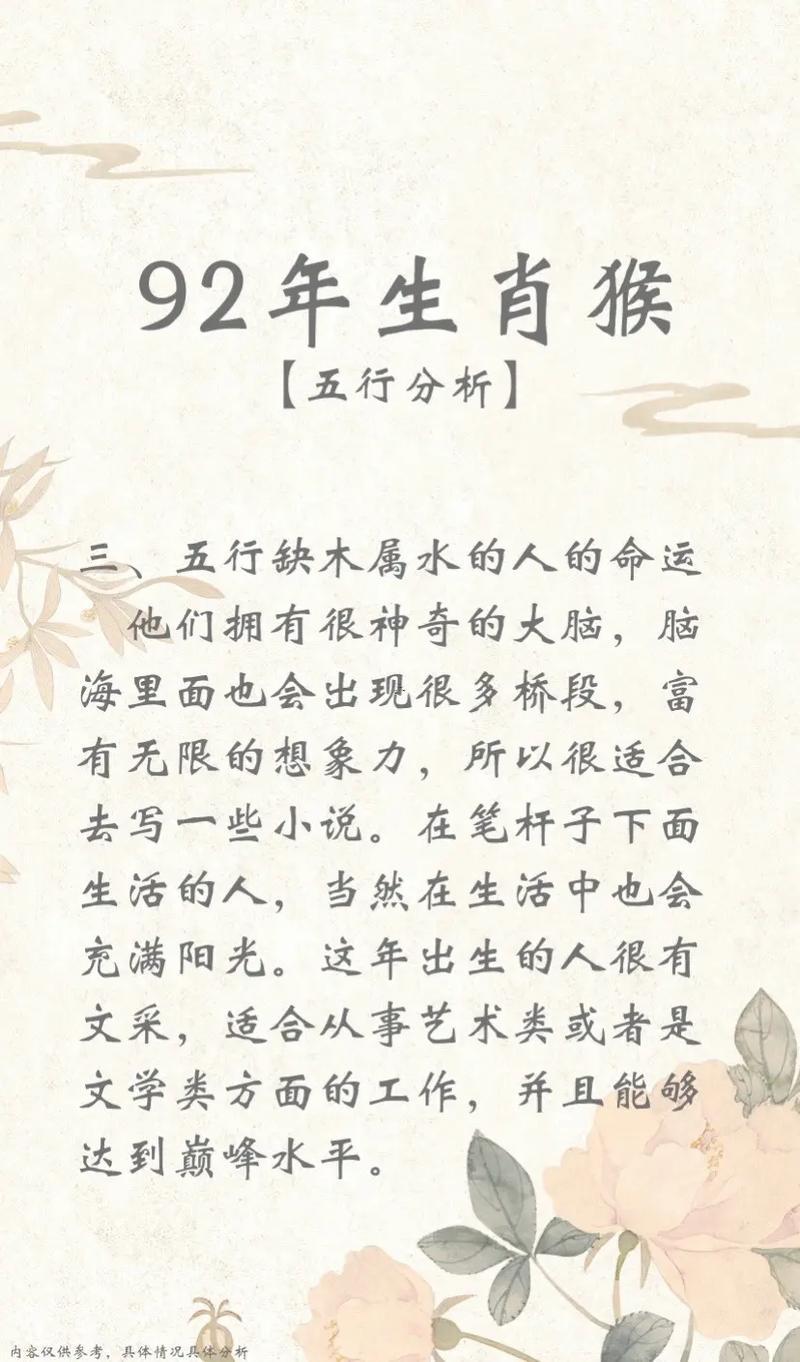 92年生肖猴
【五行分析】
三、五行缺木属水的人的命运
他们拥有很神奇的大脑，脑
海里面也会出现很多桥段，富
有无限的想象力，所以很适合
去写一些小说。在笔杆子下面
生活的人，当然在生活中也会
充满阳光。这年出生的人很有
文采，适合从事艺术类或者是
文学类方面的工作，并且能够
达到巅峰水平。
内容仅供参考，具体情况具体分析